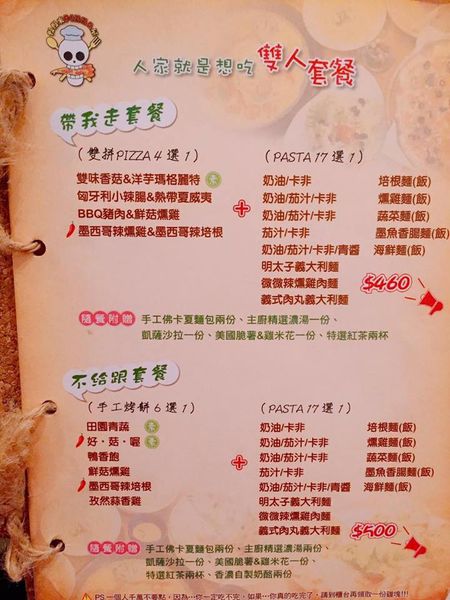 人家就是想吃 雙人套餐
帶我走套餐
(雙拼PIZZA 4 選 1)
雙味香菇&洋芋瑪格麗特 素
匈牙利小辣腸&熱帶夏威夷
BBQ豬肉&鮮菇燻雞
墨西哥辣燻雞&墨西哥辣培根
+
(PASTA 17 選 1)
奶油/卡非 培根麵(飯)
奶油/茄汁/卡非 燻雞麵(飯)
奶油/茄汁/卡非 蔬菜麵(飯)
茄汁/卡非 墨魚香腸麵(飯)
奶油/茄汁/卡非/青醬 海鮮麵(飯)
明太子義大利麵
微微辣燻雞肉麵
義式肉丸義大利麵
$460
隨餐附贈 手工佛卡夏麵包兩份、主廚精選濃湯一份、
凱薩沙拉一份、美國脆薯&雞米花一份、特選紅茶兩杯
不給跟套餐
(手工烤餅 6 選 1)
田園青蔬 素
好・菇・喔 素
鴨香飽
鮮菇燻雞
墨西哥辣培根
孜然蒜香雞
+
(PASTA 17 選 1)
奶油/茄汁/卡非 培根麵(飯)
奶油/茄汁/卡非 燻雞麵(飯)
奶油/茄汁/卡非 蔬菜麵(飯)
茄汁/卡非 墨魚香腸麵(飯)
奶油/茄汁/卡非/青醬 海鮮麵(飯)
明太子義大利麵
微微辣燻雞肉麵
義式肉丸義大利麵
$500
隨餐附贈 手工佛卡夏麵包兩份、主廚精選濃湯兩份、
凱薩沙拉一份、美國脆薯&雞米花一份、
特選紅茶兩杯、香濃自製奶酪兩份
PS 一個人千萬不要點，因為⋯你一定吃不完，如果⋯你真的吃完了，請到櫃台再領取一份雞塊!!!